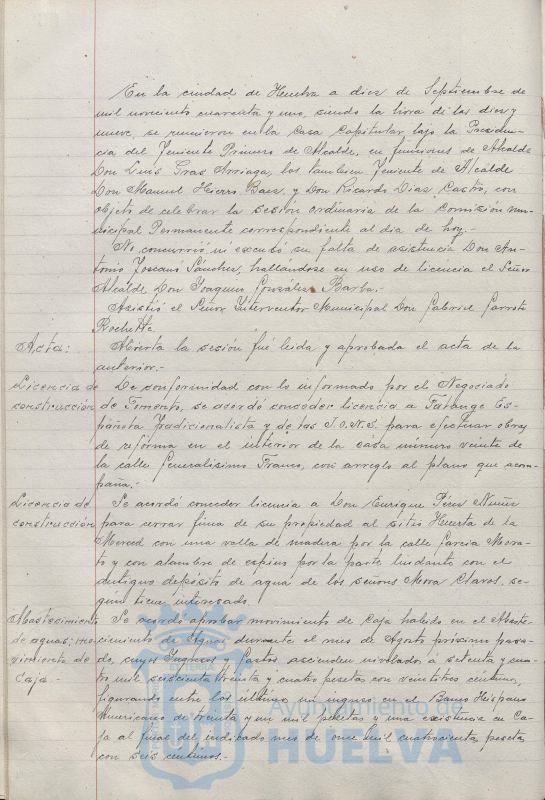 En la ciudad de Huelva a diez de Septiembre de
mil novecientos cuarenta y uno, siendo la hora de las diez y
nueve, se reunieron en la Casa Capitular, bajo la Presiden-
cia del Teniente Primero de Alcalde, en funciones de Alcalde
Don Luis Gras Arriaga, los tambien Teniente de Alcalde
Don Manuel Hierro Baez, y Don Ricardo Diaz Castro, con
objeto de celebrar la sesión ordinaria de la Comisión mu-
nicipal Permanente correspondiente al dia de hoy.-
No concurrió ni excusó su falta de asistencia Don An-
tonio Toscano Sánchez, hallándose en uso de licencia el Señor
Alcalde Don Joaquin González Barba.-
Asistió el Señor Interventor Municipal Don Gabriel Garrote
Rochette.
Acta:
Abierta la sesión fué leida y aprobada el acta de la
anterior.-
Licencia de
construcción
De conformidad con lo informado por el Negociado
de Fomento, se acordó conceder licencia a Falange Es-
pañola Tradicionalista y de las J.O.N.S. para efectuar obras
de reforma en el interior de la casa número veinte de
la calle Generalisimo Franco, con arreglo al plano que acom-
paña.-
Licencia de
construcción
Se acordó conceder licencia a Don Enrique Pérez Nuñez
para cerrar finca de su propiedad al sitio Huerta de la
Merced con una valla de madera por la calle Garcia Mora-
to y con alambre de espino por la parte lindante con el
antiguo depósito de agua de los señores Mora Claros, se-
gún tiene interesado.
Abastecimiento
de aguas; mo-
vimiento de
Caja.-
Se acordó aprobar movimiento de Caja habido en el Abaste-
cimiento de Aguas durante el mes de Agosto próximo pasa-
do, cuyos Ingresos y Gastos, ascienden nivelados a setenta y cua-
tro mil seiscientas treinta y cuatro pesetas con veintitres centimos,
figurando entre los últimos un ingreso en el Banco Hispano
Americano de treinta y un mil pesetas y una existencia en Ca-
ja al final del indicado mes de once mil cuatrocientas pesetas
con seis centimos.-
Ayuntamiento de
HUELVA